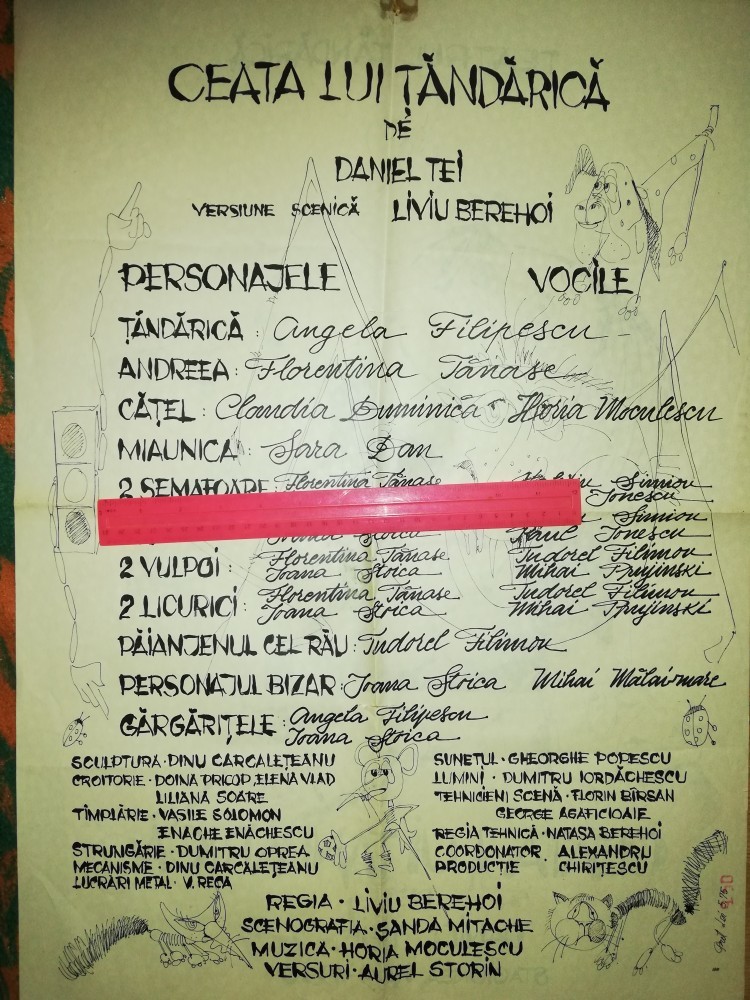 CEATA LUI ȚĂNDĂRICĂ
DE
DANIEL TEI
VERSIUNE SCENICĂ LIVIU BEREHOI
PERSONAJELE VOCILE
ȚĂNDĂRICĂ: Angela Filipescu
ANDREEA: Florentina Tănase
CĂȚEL: Claudia Duminică Horia Moculescu
MIAUNICA: Sara Dan
2 SEMAFOARE: Florentina Tănase Simion
Ionescu
Simion
Ioana Stoica Paul Ionescu
2 VULPOI: Florentina Tănase Tudorel Filimon
Ioana Stoica Mihai Prujinski
2 LICURICI: Florentina Tănase Tudorel Filimon
Ioana Stoica Mihai Prujinski
PĂIANJENUL CEL RĂU: Tudorel Filimon
PERSONAJUL BIZAR: Ioana Stoica Mihai Mălaimare
GĂRGĂRIȚELE: Angela Filipescu
Ioana Stoica
SCULPTURA · DINU CARCALEȚEANU
CROITORIE · DOINA PRICOP, ELENA VLAD
LILIANA SOARE
TÎMPLĂRIE · VASILE SOLOMON
ENACHE ENĂCHESCU
STRUNGĂRIE · DUMITRU OPREA
MECANISME · DINU CARCALEȚEANU
LUCRĂRI METAL · V. RECA
SUNETUL · GHEORGHE POPESCU
LUMINI · DUMITRU IORDĂCHESCU
TEHNICIENI SCENĂ · FLORIN BÎRSAN
GEORGE AGAFICIOAIE
REGIA TEHNICĂ · NATAȘA BEREHOI
COORDONATOR ALEXANDRU
PRODUCȚIE CHIRIȚESCU
REGIA · LIVIU BEREHOI
SCENOGRAFIA · SANDA MITACHE
MUZICA · HORIA MOCULESCU
VERSURI · AUREL STORIN